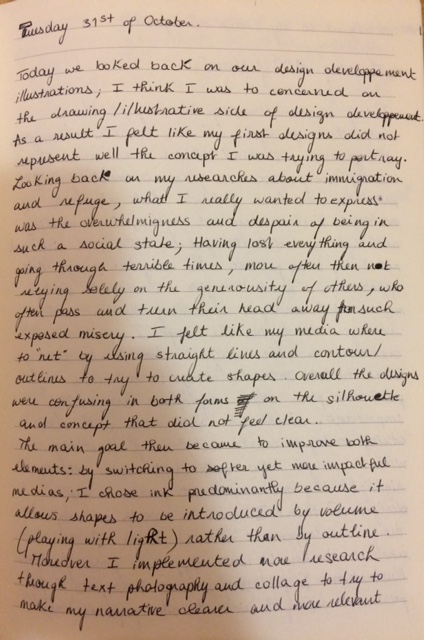 Tuesday 31st of October.
Today we looked back on our design developpement
illustrations, I think I was to concerned on
the drawing/illustrative side of design developpement.
As a result I felt like my first designs did not
represent well the concept I was trying to portray.
Looking back on my researches about immigration
and refuge, what I really wanted to express
was the overwhelmigness and despair of being in
such a social state; Having lost everything and
going through terrible times, more often then not
relying solely on the generousity of others, who
often pass and turn their head away from such
exposed misery. I felt like my media where
to "net" by using straight lines and contour/
outlines to try to create shapes. Overall the designs
were confusing in both forms on the silhouette
and concept that did not feel clear.
The main goal then became to improve both
elements: by switching to softer yet more impactful
medias, I chose ink predominantly because it
allows shapes to be introduced by volume
(playing with light) rather than by outline.
Moreover I implemented more research
through text photography and collage to try to
make my narrative clearer and more relevant